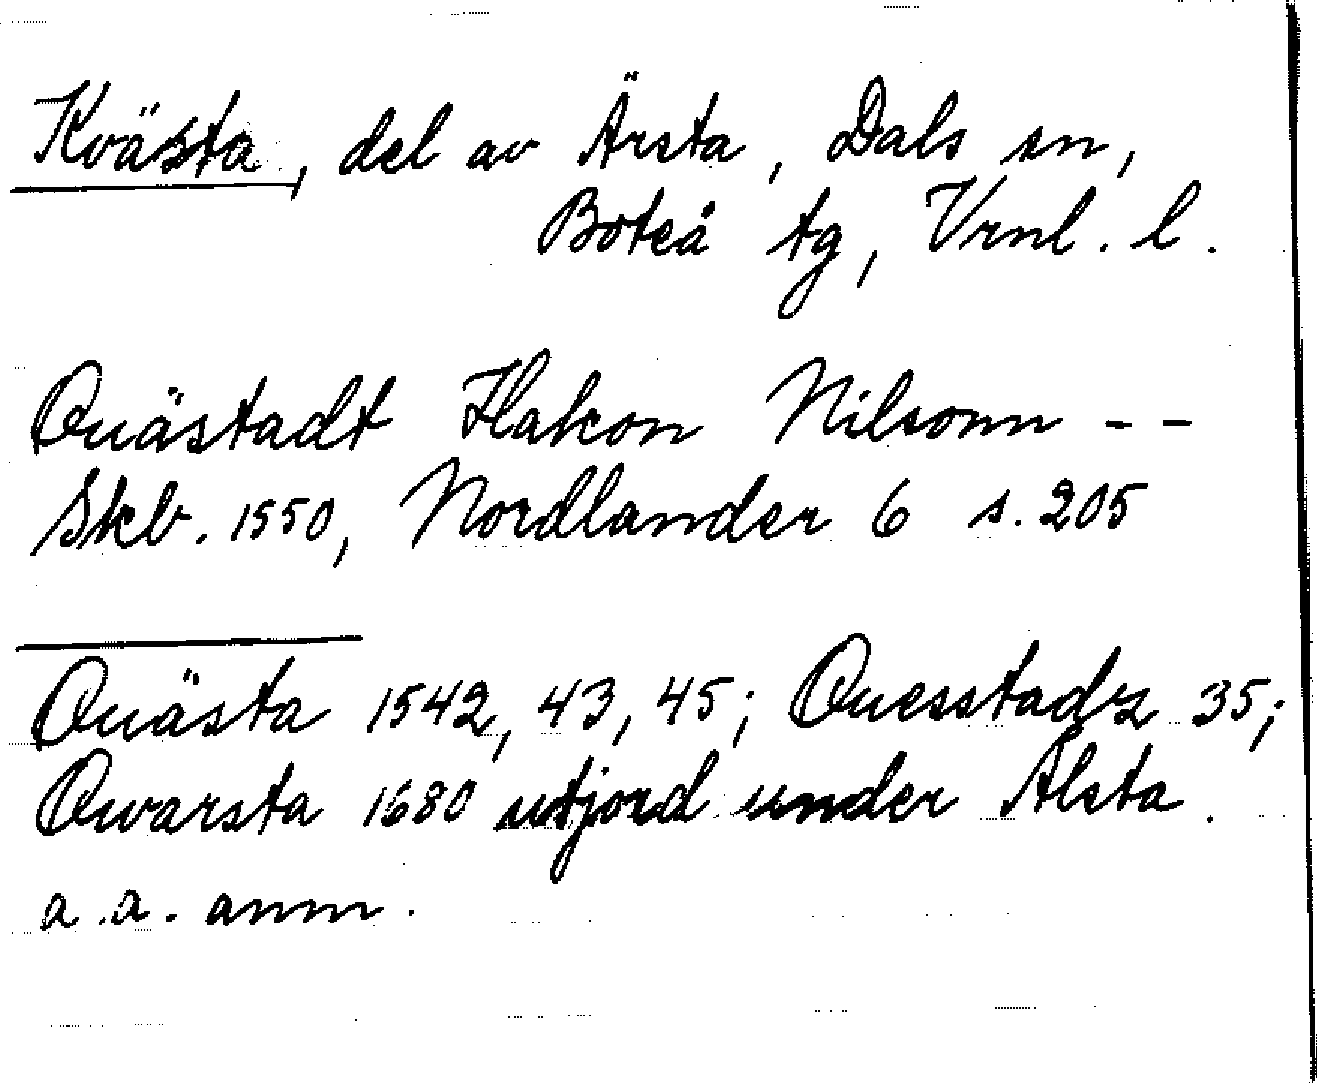 Kvästa, del av Ärsta, Dals sn,
Boteå tg, Vrnl. l.
Quästadt Hakon Nilsonn - -
Skb. 1550, Nordlander 6 s. 205
Quästa 1542, 43, 45; Quesstadz 35;
Qwarsta 1680 utjord under Alsta.
a.a. anm.